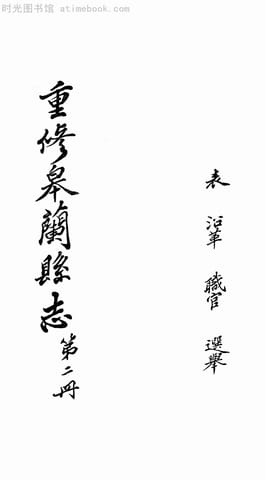 时光图书馆 - atimebook.com
表 沿革 職官 選舉
重修皋蘭縣志 第二冊